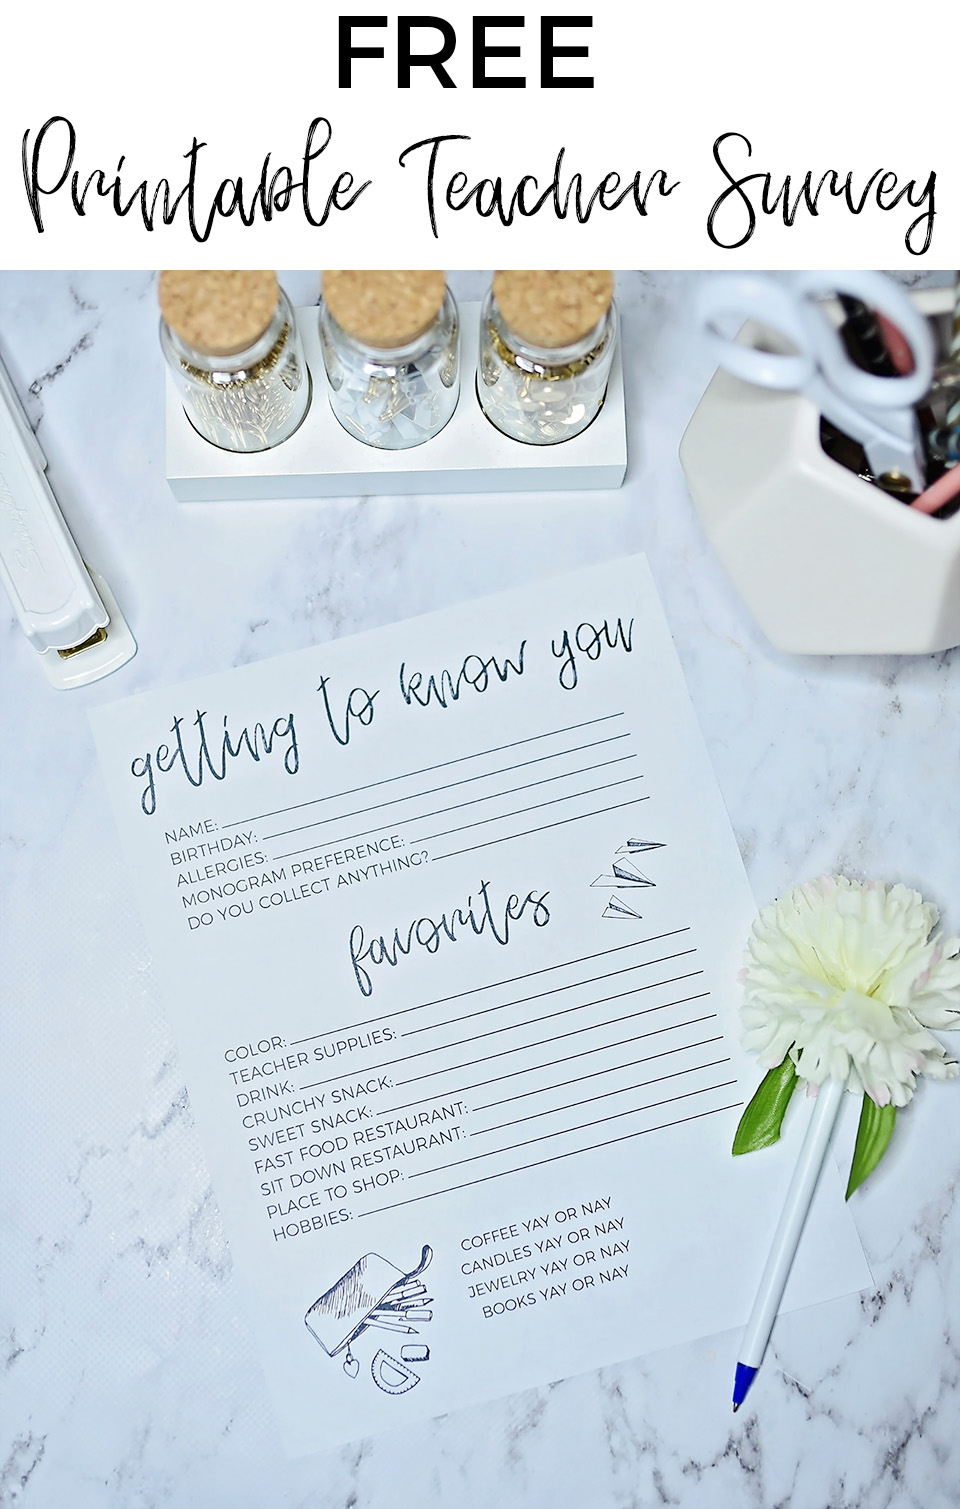 FREE
Printable Teacher Survey
getting to know you
NAME:
BIRTHDAY:
ALLERGIES:
MONOGRAM PREFERENCE:
DO YOU COLLECT ANYTHING?
favorites
COLOR:
TEACHER SUPPLIES:
DRINK:
CRUNCHY SNACK:
SWEET SNACK:
FAST FOOD RESTAURANT:
SIT DOWN RESTAURANT:
PLACE TO SHOP:
HOBBIES:
COFFEE YAY OR NAY
CANDLES YAY OR NAY
JEWELRY YAY OR NAY
BOOKS YAY OR NAY